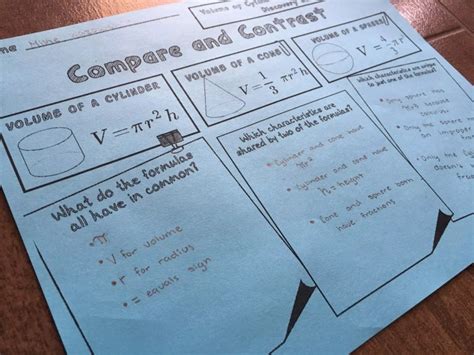 Volume of
Discovery
Compare and Contrast
VOLUME OF A CYLINDER
V = πr²h
VOLUME OF A CONE
V = 1/3 πr²h
VOLUME OF A SPHERE
V = 4/3 πr³
What do the formulas
all have in common?
• π
• V for volume
• r for radius
• = equals sign
Which characteristics are
shared by two of the formulas?
• Cylinder and cone have
πr²
• Cylinder and cone have
h = height
• Cone and sphere both
have fractions
Which characteristics are unique
to just one of the formulas?
• Only sphere has
• Only the
• Only